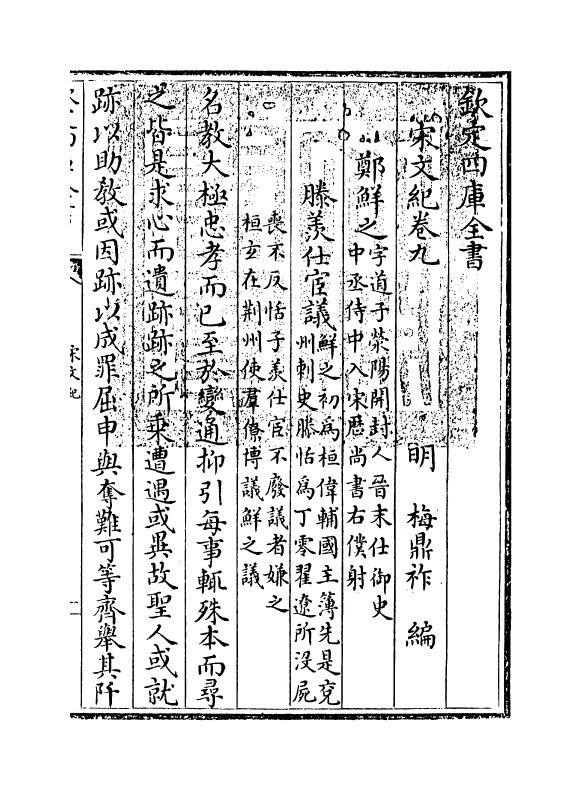 欽定四庫全書
宋文紀卷九
明 梅鼎祚 編
鄭鮮之字道子滎陽開封人晉末仕御史
中丞侍中入宋歷尚書右僕射
滕羨仕宦議鮮之初為桓偉輔國主簿先是兗
州刺史滕恬為丁零翟遼所沒屍
喪不反恬子羨仕宦不廢議者嫌之
桓玄在荆州使羣僚博議鮮之議
名教大極忠孝而已至於變通抑引每事輒殊本而尋
之皆是求心而遺跡跡之所乘遭遇或異故聖人或就
跡以助教或因跡以成罪屈申與奪難可等齊舉其阡
宋文紀